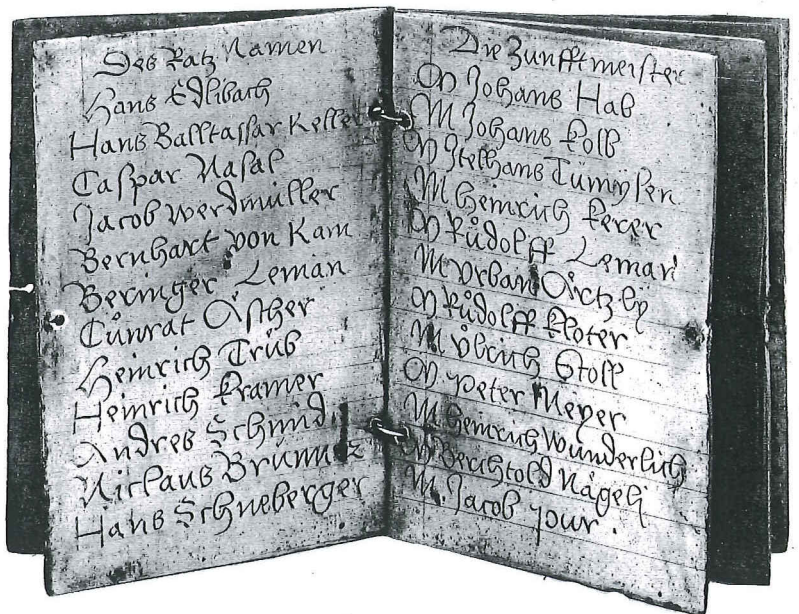 Des Ratz Namen
Hans Edlibach
Hans Balltassar Keller
Caspar Nasal
Jacob Werdmüller
Bernhart von Kam
Beringer Leman
Cůnrat Åscher
Heinrich Trüb
Heinrich Kramer
Andres Schmid
Niclaus Brünn
Hans Schneberger
Die Zunfftmeister
M Johans Hab
M Johans Kolb
M Stelhans Tümysen
M Heinrich
M Růdolff Leman
M Vrban
M Růdolff Kloter
M Ůlrich Stoll
M Peter Meyer
M Heinrich Wunderlich
M Berchtold Någeli
M Jacob